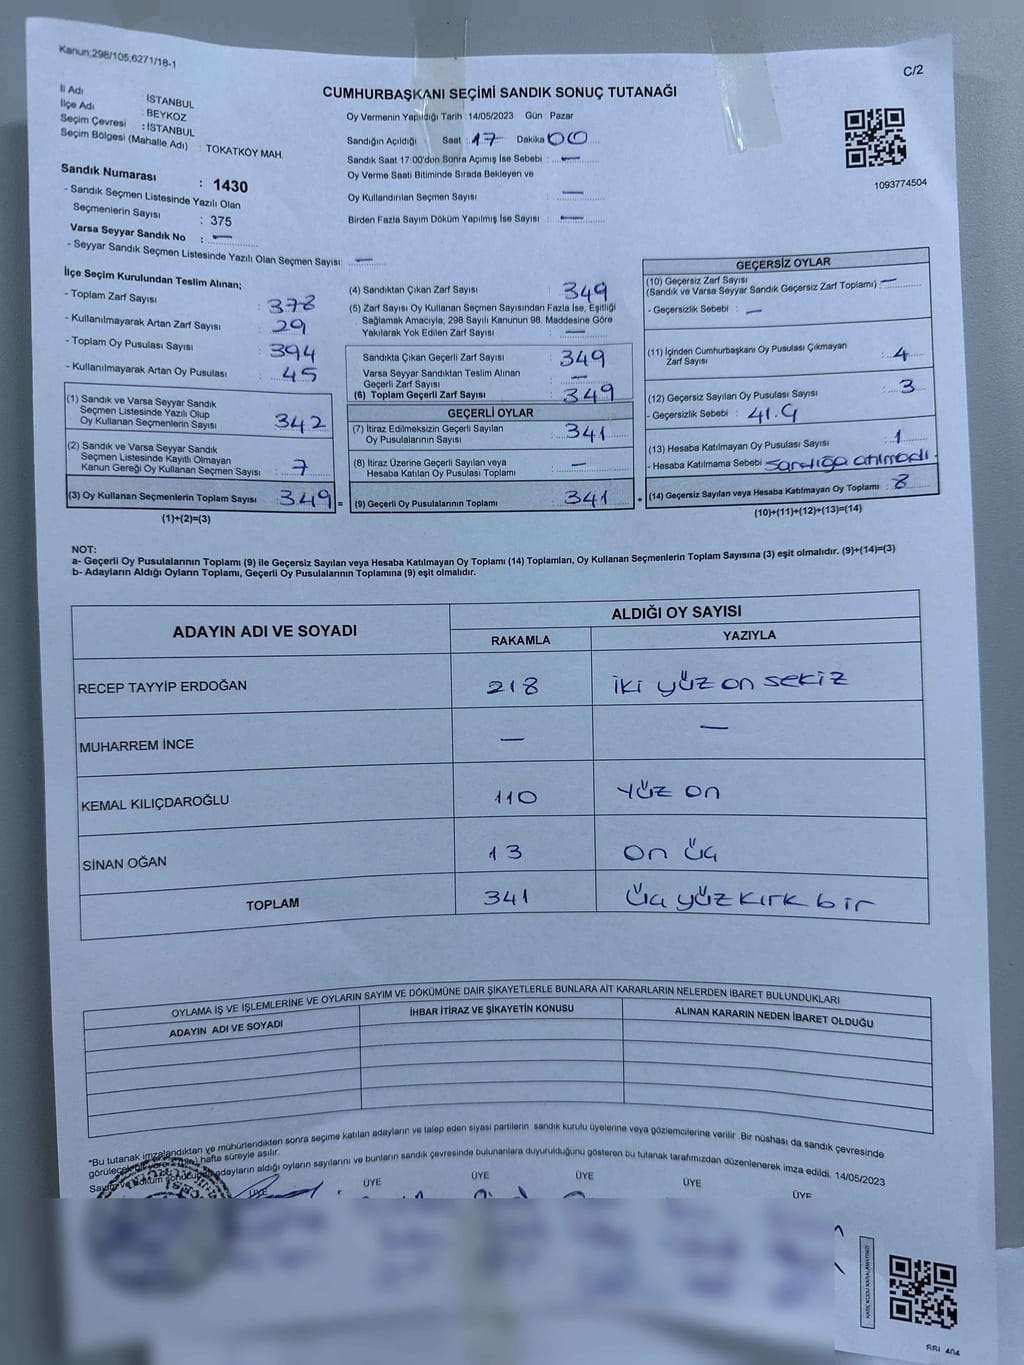 Kanun;298/105,6271/18-1
C/2
CUMHURBAŞKANI SEÇİMİ SANDIK SONUÇ TUTANAĞI
İl Adı : İSTANBUL
İlçe Adı : BEYKOZ
Seçim Çevresi : İSTANBUL
Seçim Bölgesi (Mahalle Adı) : TOKATKÖY MAH.
Sandık Numarası : 1430
- Sandık Seçmen Listesinde Yazılı Olan
Seçmenlerin Sayısı : 375
Varsa Seyyar Sandık No : —
- Seyyar Sandık Seçmen Listesinde Yazılı Olan Seçmen Sayısı: —
Oy Vermenin Yapıldığı Tarih : 14/05/2023 Gün : Pazar
Sandığın Açıldığı Saat : 17 Dakika 00
Sandık Saat 17.00'den Sonra Açımış İse Sebebi : —
Oy Verme Saati Bitiminde Sırada Bekleyen ve
Oy Kullandırılan Seçmen Sayısı : —
Birden Fazla Sayım Döküm Yapılmış İse Sayısı : —
1093774504
İlçe Seçim Kurulundan Teslim Alınan;
- Toplam Zarf Sayısı : 378
- Kullanılmayarak Artan Zarf Sayısı : 29
- Toplam Oy Pusulası Sayısı : 394
- Kullanılmayarak Artan Oy Pusulası : 45
(1) Sandık ve Varsa Seyyar Sandık
Seçmen Listesinde Yazılı Olup
Oy Kullanan Seçmenlerin Sayısı : 342
(2) Sandık ve Varsa Seyyar Sandık
Seçmen Listesinde Kayıtlı Olmayan
Kanun Gereği Oy Kullanan Seçmen Sayısı : 7
(3) Oy Kullanan Seçmenlerin Toplam Sayısı : 349 =
(1)+(2)=(3)
(4) Sandıktan Çıkan Zarf Sayısı : 349
(5) Zarf Sayısı Oy Kullanan Seçmen Sayısından Fazla İse, Eşitliği
Sağlamak Amacıyla; 298 Sayılı Kanunun 98. Maddesine Göre
Yakılarak Yok Edilen Zarf Sayısı : —
Sandıkta Çıkan Geçerli Zarf Sayısı : 349
Varsa Seyyar Sandıktan Teslim Alınan
Geçerli Zarf Sayısı : —
(6) Toplam Geçerli Zarf Sayısı : 349
GEÇERLİ OYLAR
(7) İtiraz Edilmeksizin Geçerli Sayılan
Oy Pusulalarının Sayısı : 341
(8) İtiraz Üzerine Geçerli Sayılan veya
Hesaba Katılan Oy Pusulası Toplamı : —
(9) Geçerli Oy Pusulalarının Toplamı : 341 +
GEÇERSİZ OYLAR
(10) Geçersiz Zarf Sayısı
(Sandık ve Varsa Seyyar Sandık Geçersiz Zarf Toplamı) : —
- Geçersizlik Sebebi : —
(11) İçinden Cumhurbaşkanı Oy Pusulası Çıkmayan
Zarf Sayısı : 4
(12) Geçersiz Sayılan Oy Pusulası Sayısı : 3
- Geçersizlik Sebebi : 41.G
(13) Hesaba Katılmayan Oy Pusulası Sayısı : 1
- Hesaba Katılmama Sebebi : sandığa atılmadı.
(14) Geçersiz Sayılan veya Hesaba Katılmayan Oy Toplamı : 8
(10)+(11)+(12)+(13)=(14)
NOT:
a- Geçerli Oy Pusulalarının Toplamı (9) ile Geçersiz Sayılan veya Hesaba Katılmayan Oy Toplamı (14) Toplamları, Oy Kullanan Seçmenlerin Toplam Sayısına (3) eşit olmalıdır. (9)+(14)=(3)
b- Adayların Aldığı Oyların Toplamı, Geçerli Oy Pusulalarının Toplamına (9) eşit olmalıdır.
ADAYIN ADI VE SOYADI
ALDIĞI OY SAYISI
RAKAMLA YAZIYLA
RECEP TAYYİP ERDOĞAN 218 iki yüz on sekiz
MUHARREM İNCE — —
KEMAL KILIÇDAROĞLU 110 yüz on
SİNAN OĞAN 13 on üç
TOPLAM 341 üç yüz kırk bir
OYLAMA İŞ VE İŞLEMLERİNE VE OYLARIN SAYIM VE DÖKÜMÜNE DAİR ŞİKAYETLERLE BUNLARA AİT KARARLARIN NELERDEN İBARET BULUNDUKLARI
ADAYIN ADI VE SOYADI İHBAR İTİRAZ VE ŞİKAYETİN KONUSU ALINAN KARARIN NEDEN İBARET OLDUĞU
*Bu tutanak imzalandıktan ve mühürlendikten sonra seçime katılan adayların ve talep eden siyasi partilerin sandık kurulu üyelerine veya gözlemcilerine verilir .Bir nüshası da sandık çevresinde
hafta süreyle asılır.
adayların aldığı oyların sayılarını ve bunların sandık çevresinde bulunanlara duyurulduğunu gösteren bu tutanak tarafımızdan düzenlenerek imza edildi. 14/05/2023
ÜYE ÜYE ÜYE ÜYE ÜYE ÜYE